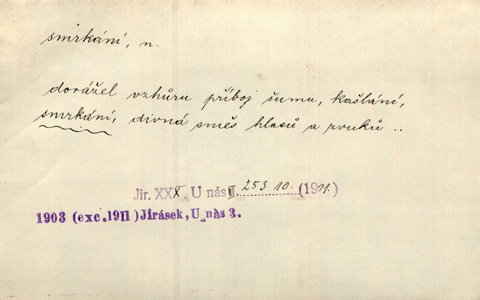 smrkání, n.
dorážel vzhůru příboj šumu, kašlání,
smrkání, divná směs hlasů a zvuků ..
Jir. XXX. U nás 253.10. (1911.)
1903 (exc. 1911) Jirásek, U nás 3.